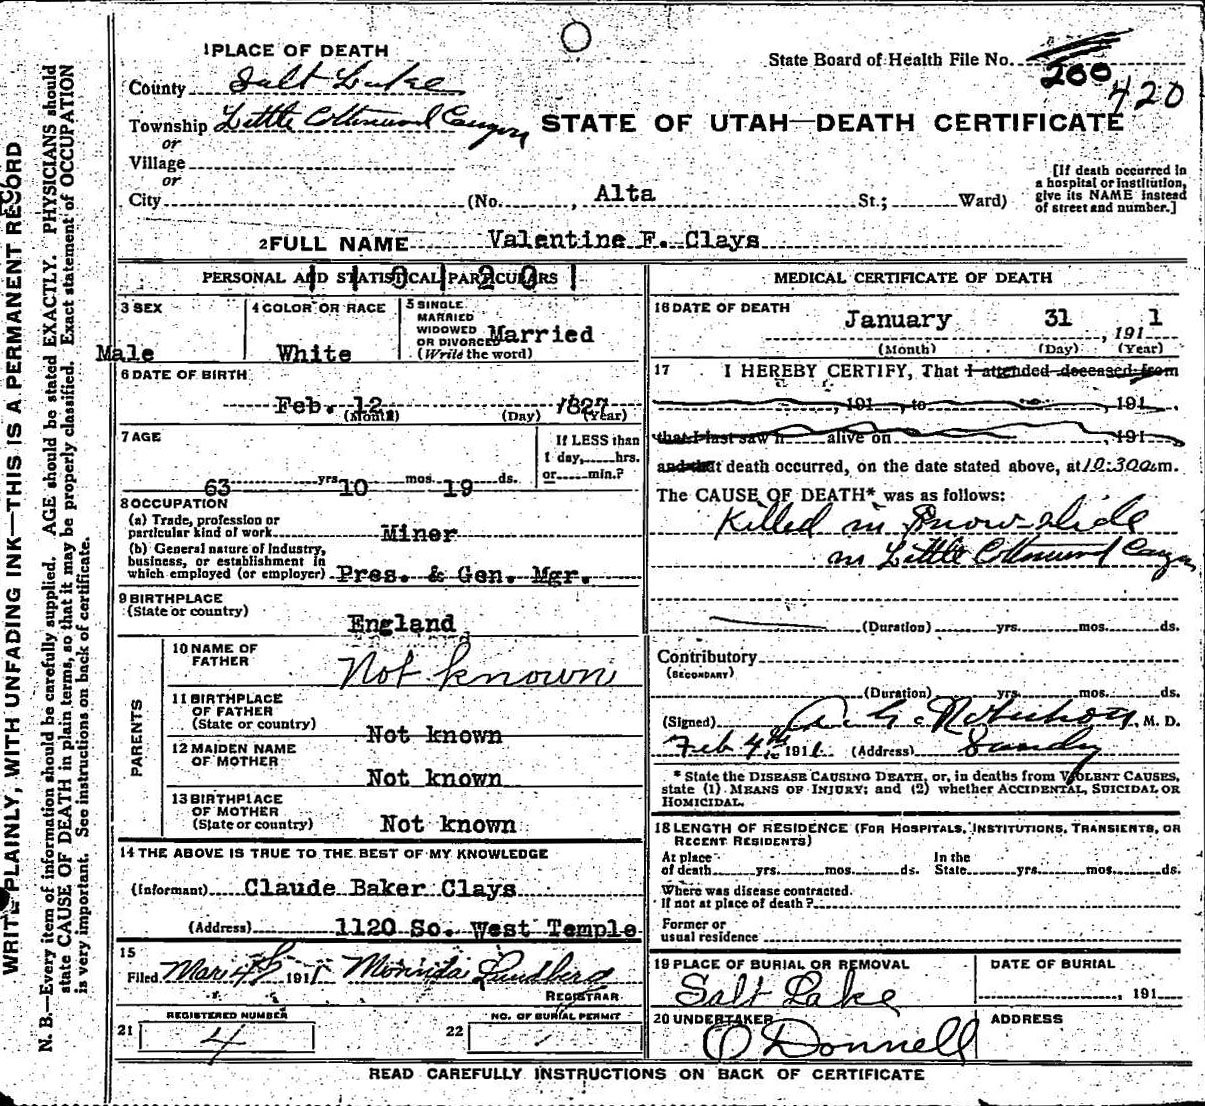 1 PLACE OF DEATH
County Salt Lake
Township Little Cottonwood Canyon
or
Village
or
City (No. , Alta St.; Ward)
State Board of Health File No. 200
420
STATE OF UTAH—DEATH CERTIFICATE
[If death occurred in
a hospital or institution,
give its NAME instead
of street and number.]
2 FULL NAME Valentine F. Clays
PERSONAL AND STATISTICAL PARTICULARS
3 SEX
Male
4 COLOR OR RACE
White
5 SINGLE
MARRIED
WIDOWED
OR DIVORCED Married
(Write the word)
6 DATE OF BIRTH
Feb. 12 1827
(Month) (Day) (Year)
7 AGE
63 yrs 10 mos. 19 ds.
If LESS than
1 day, hrs.
or min.?
8 OCCUPATION
(a) Trade, profession or
particular kind of work Miner
(b) General nature of industry,
business, or establishment in
which employed (or employer) Pres. & Gen. Mgr.
9 BIRTHPLACE
(State or country)
England
PARENTS
10 NAME OF
FATHER
Not known
11 BIRTHPLACE
OF FATHER
(State or country)
Not known
12 MAIDEN NAME
OF MOTHER
Not known
13 BIRTHPLACE
OF MOTHER
(State or country) Not known
14 THE ABOVE IS TRUE TO THE BEST OF MY KNOWLEDGE
(Informant) Claude Baker Clays
(Address) 1120 So. West Temple
15
Filed Mar 4th 1911 Lundberg
REGISTRAR
21 REGISTERED NUMBER
4
22 NO. OF BURIAL PERMIT
MEDICAL CERTIFICATE OF DEATH
16 DATE OF DEATH
January 31 , 191 1
(Month) (Day) (Year)
17 I HEREBY CERTIFY, That I attended deceased from
, 191 , to , 191 .
that I last saw h alive on , 191
and that death occurred, on the date stated above, at 10:30 a m.
The CAUSE OF DEATH* was as follows:
Killed in Snow-slide
in Little Cottonwood Canyon
(Duration) yrs. mos. ds.
Contributory
(SECONDARY)
(Duration) yrs. mos. ds.
(Signed) , M. D.
Feb 4th 1911 (Address) Sandy
* State the DISEASE CAUSING DEATH, or, in deaths from VIOLENT CAUSES,
state (1) MEANS OF INJURY; and (2) whether ACCIDENTAL, SUICIDAL OR
HOMICIDAL.
18 LENGTH OF RESIDENCE (FOR HOSPITALS, INSTITUTIONS, TRANSIENTS, OR
RECENT RESIDENTS)
At place
of death yrs. mos. ds.
In the
State yrs. mos. ds.
Where was disease contracted.
if not at place of death?
Former or
usual residence
19 PLACE OF BURIAL OR REMOVAL
Salt Lake
DATE OF BURIAL
, 191
20 UNDERTAKER
O Donnell
ADDRESS
READ CAREFULLY INSTRUCTIONS ON BACK OF CERTIFICATE
WRITE PLAINLY, WITH UNFADING INK—THIS IS A PERMANENT RECORD
N. B.—Every item of information should be carefully supplied. AGE should be stated EXACTLY. PHYSICIANS should
state CAUSE OF DEATH in plain terms, so that it may be properly classified. Exact statement of OCCUPATION
is very important. See instructions on back of certificate.